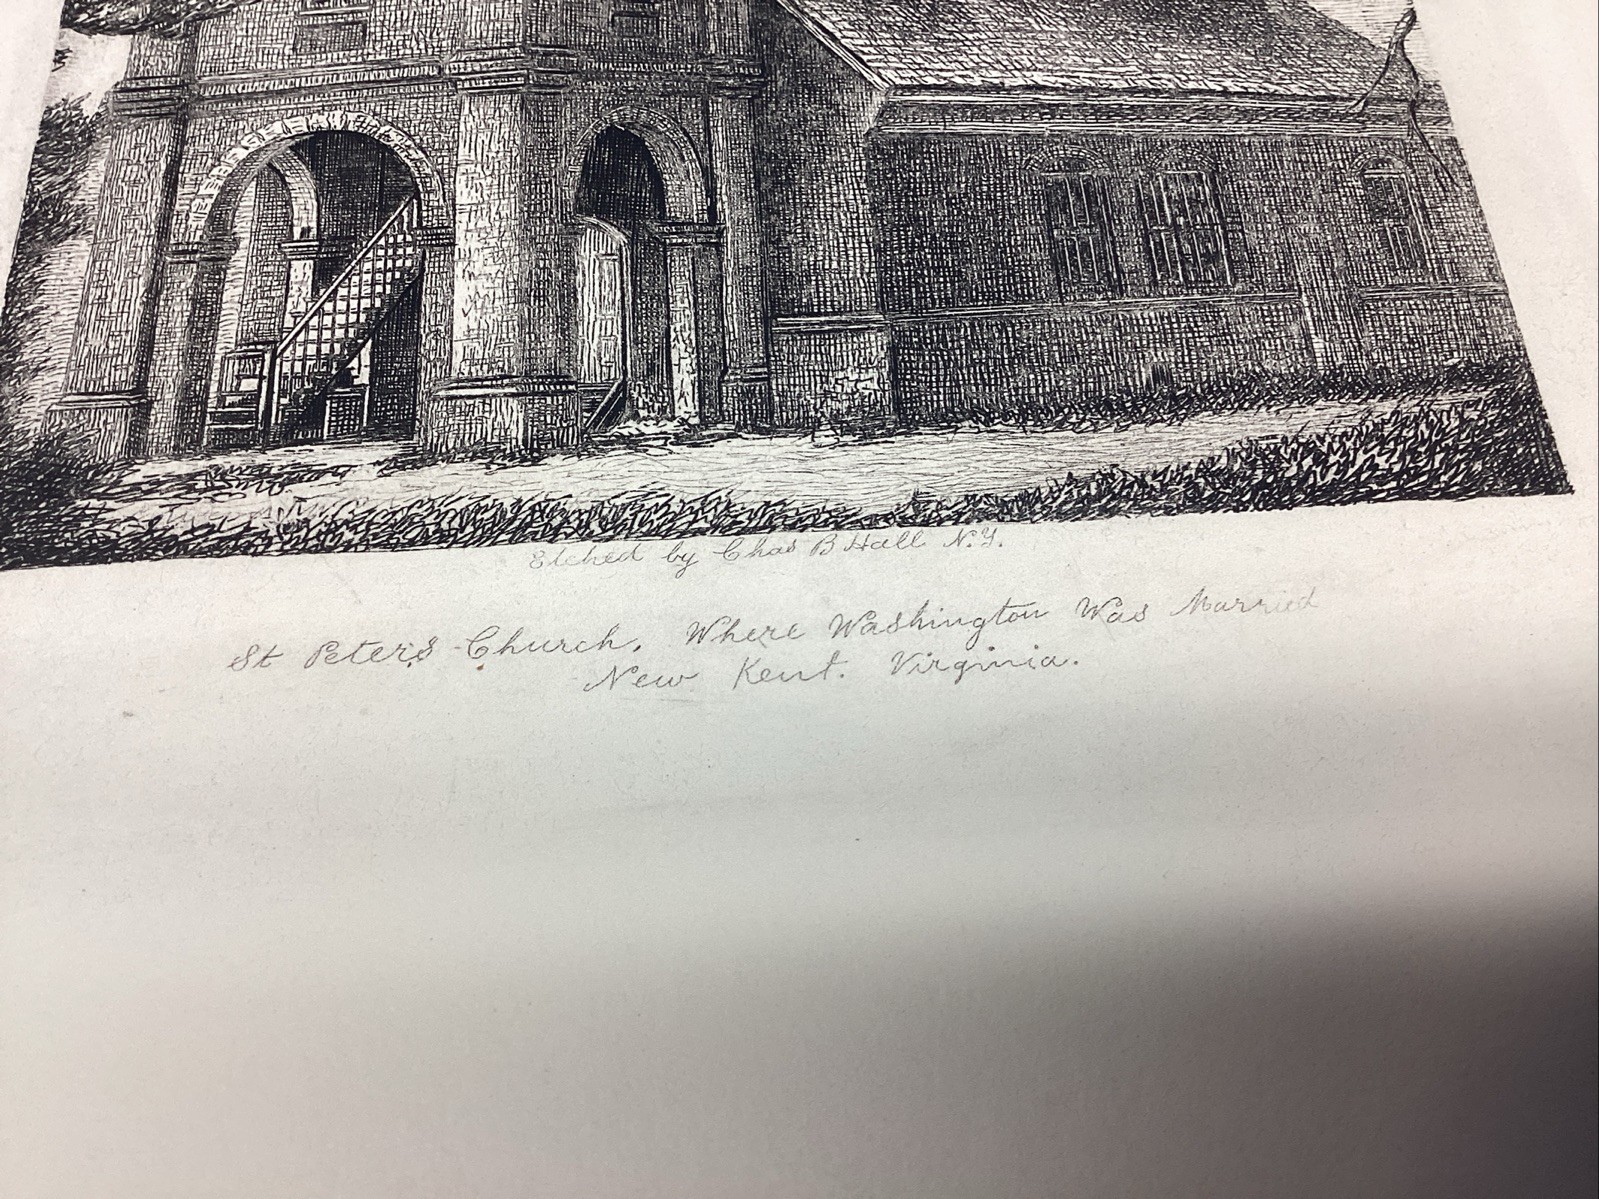 Etched by Chas B Hall N.Y.
St Peter's Church, Where Washington Was Married
New Kent. Virginia.